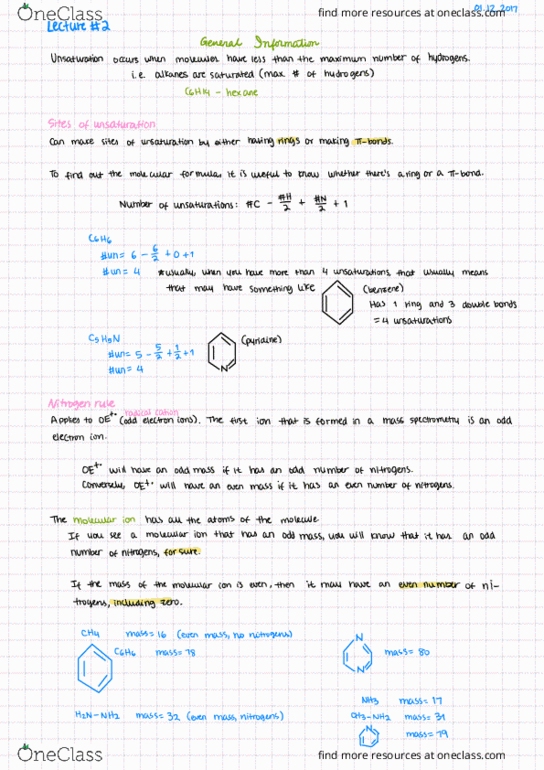 OneClass
find more resources at oneclass.com
01.12.2017
Lecture #2
General Information
Unsaturation occurs when molecules have less than the maximum number of hydrogens.
i.e. alkanes are saturated (max # of hydrogens)
C6H14 - hexane
Sites of unsaturation
Can make sites of unsaturation by either having rings or making π-bonds.
To find out the molecular formula, it is useful to know whether there's a ring or a π-bond.
Number of unsaturations: #C - #H/2 + #N/2 + 1
C6H6
#un = 6 - 6/2 + 0 + 1
#un = 4 *usually, when you have more than 4 unsaturations, that usually means
that may have something like (benzene)
Has 1 ring and 3 double bonds
= 4 unsaturations
C5H5N
(pyridine)
#un = 5 - 5/2 + 1/2 + 1
#un = 4
N
Nitrogen rule
radical cation
Applies to OE+• (odd electron ions). The first ion that is formed in a mass spectrometry is an odd
electron ion.
OE+• will have an odd mass if it has an odd number of nitrogens.
Conversely, OE+• will have an even mass if it has an even number of nitrogens.
The molecular ion has all the atoms of the molecule.
If you see a molecular ion that has an odd mass, you will know that it has an odd
number of nitrogens, for sure.
If the mass of the molecular ion is even, then it may have an even number of ni-
trogens, including zero.
CH4 mass = 16 (even mass, no nitrogens)
C6H6 mass = 78
N
N
mass = 80
H2N-NH2 mass = 32 (even mass, nitrogens)
NH3 mass = 17
CH3-NH2 mass = 31
N
mass = 79
OneClass
find more resources at oneclass.com